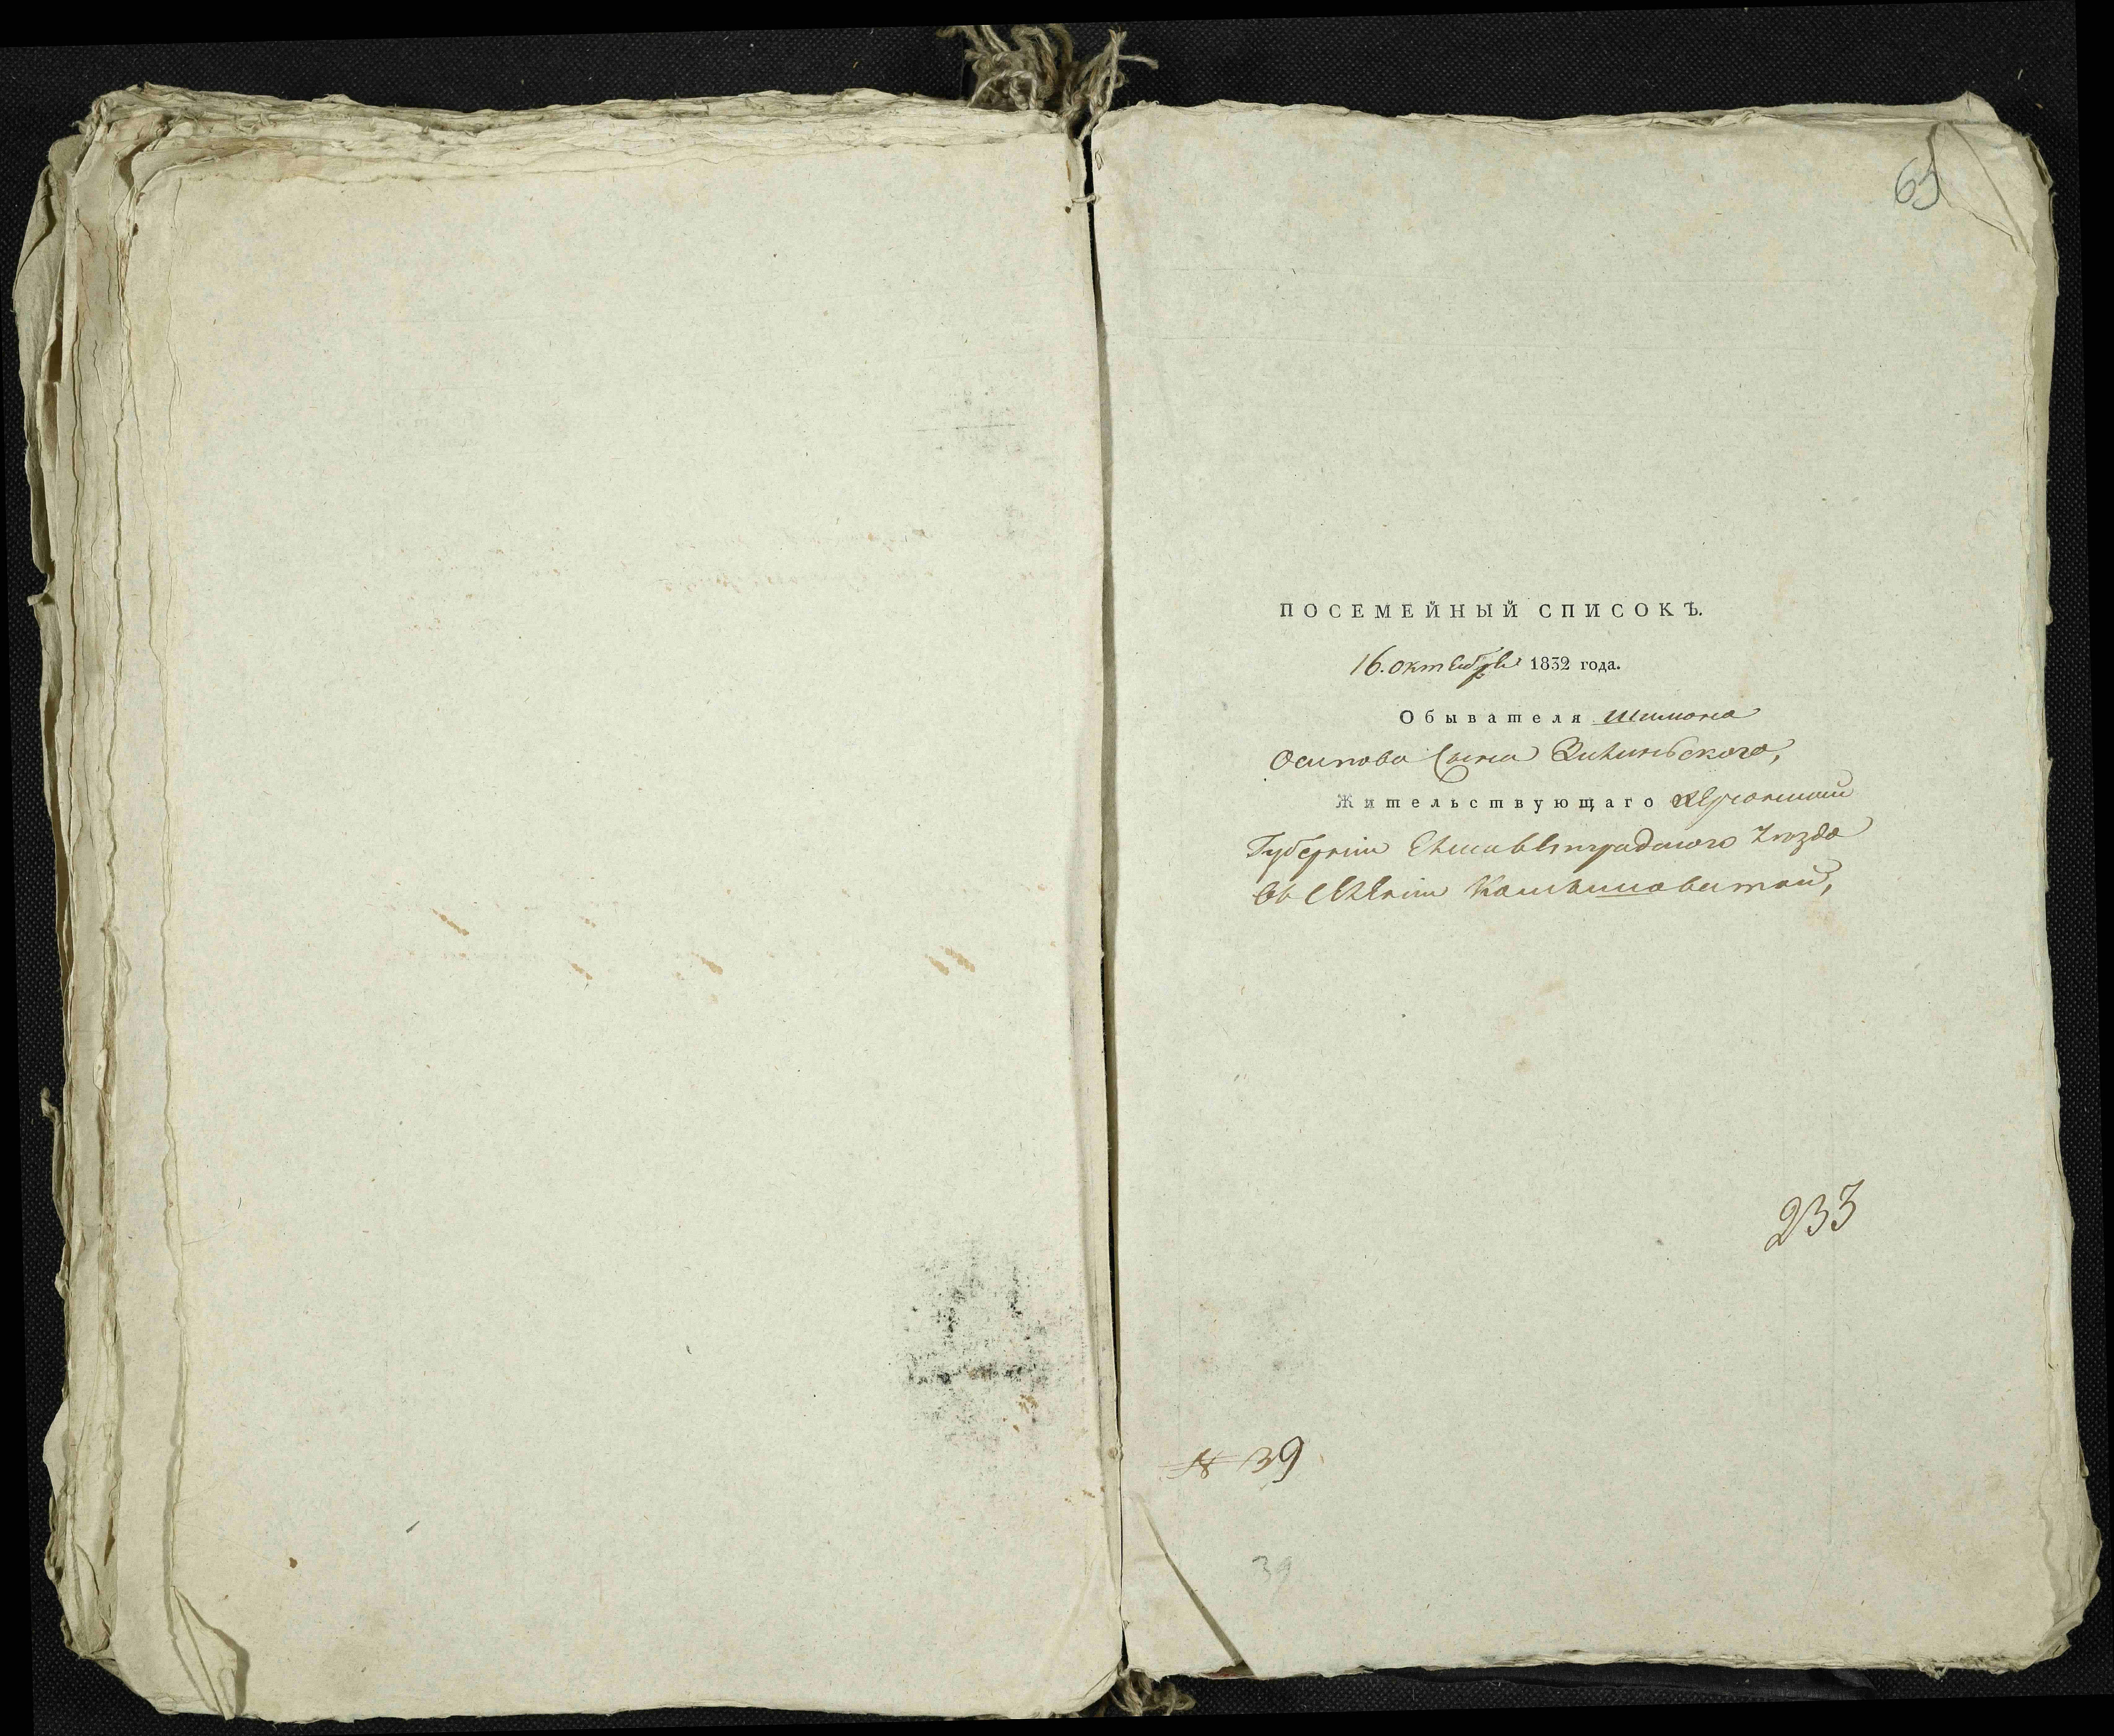 65
ПОСЕМЕЙНЫЙ СПИСОКЪ.
16. октебре 1832 года.
Обывателя Шимона
Осипова Сына
Жительствующаго Херсонской
Губернiи Елисаветградского уезда
въ селенiи
233
№ 39
39